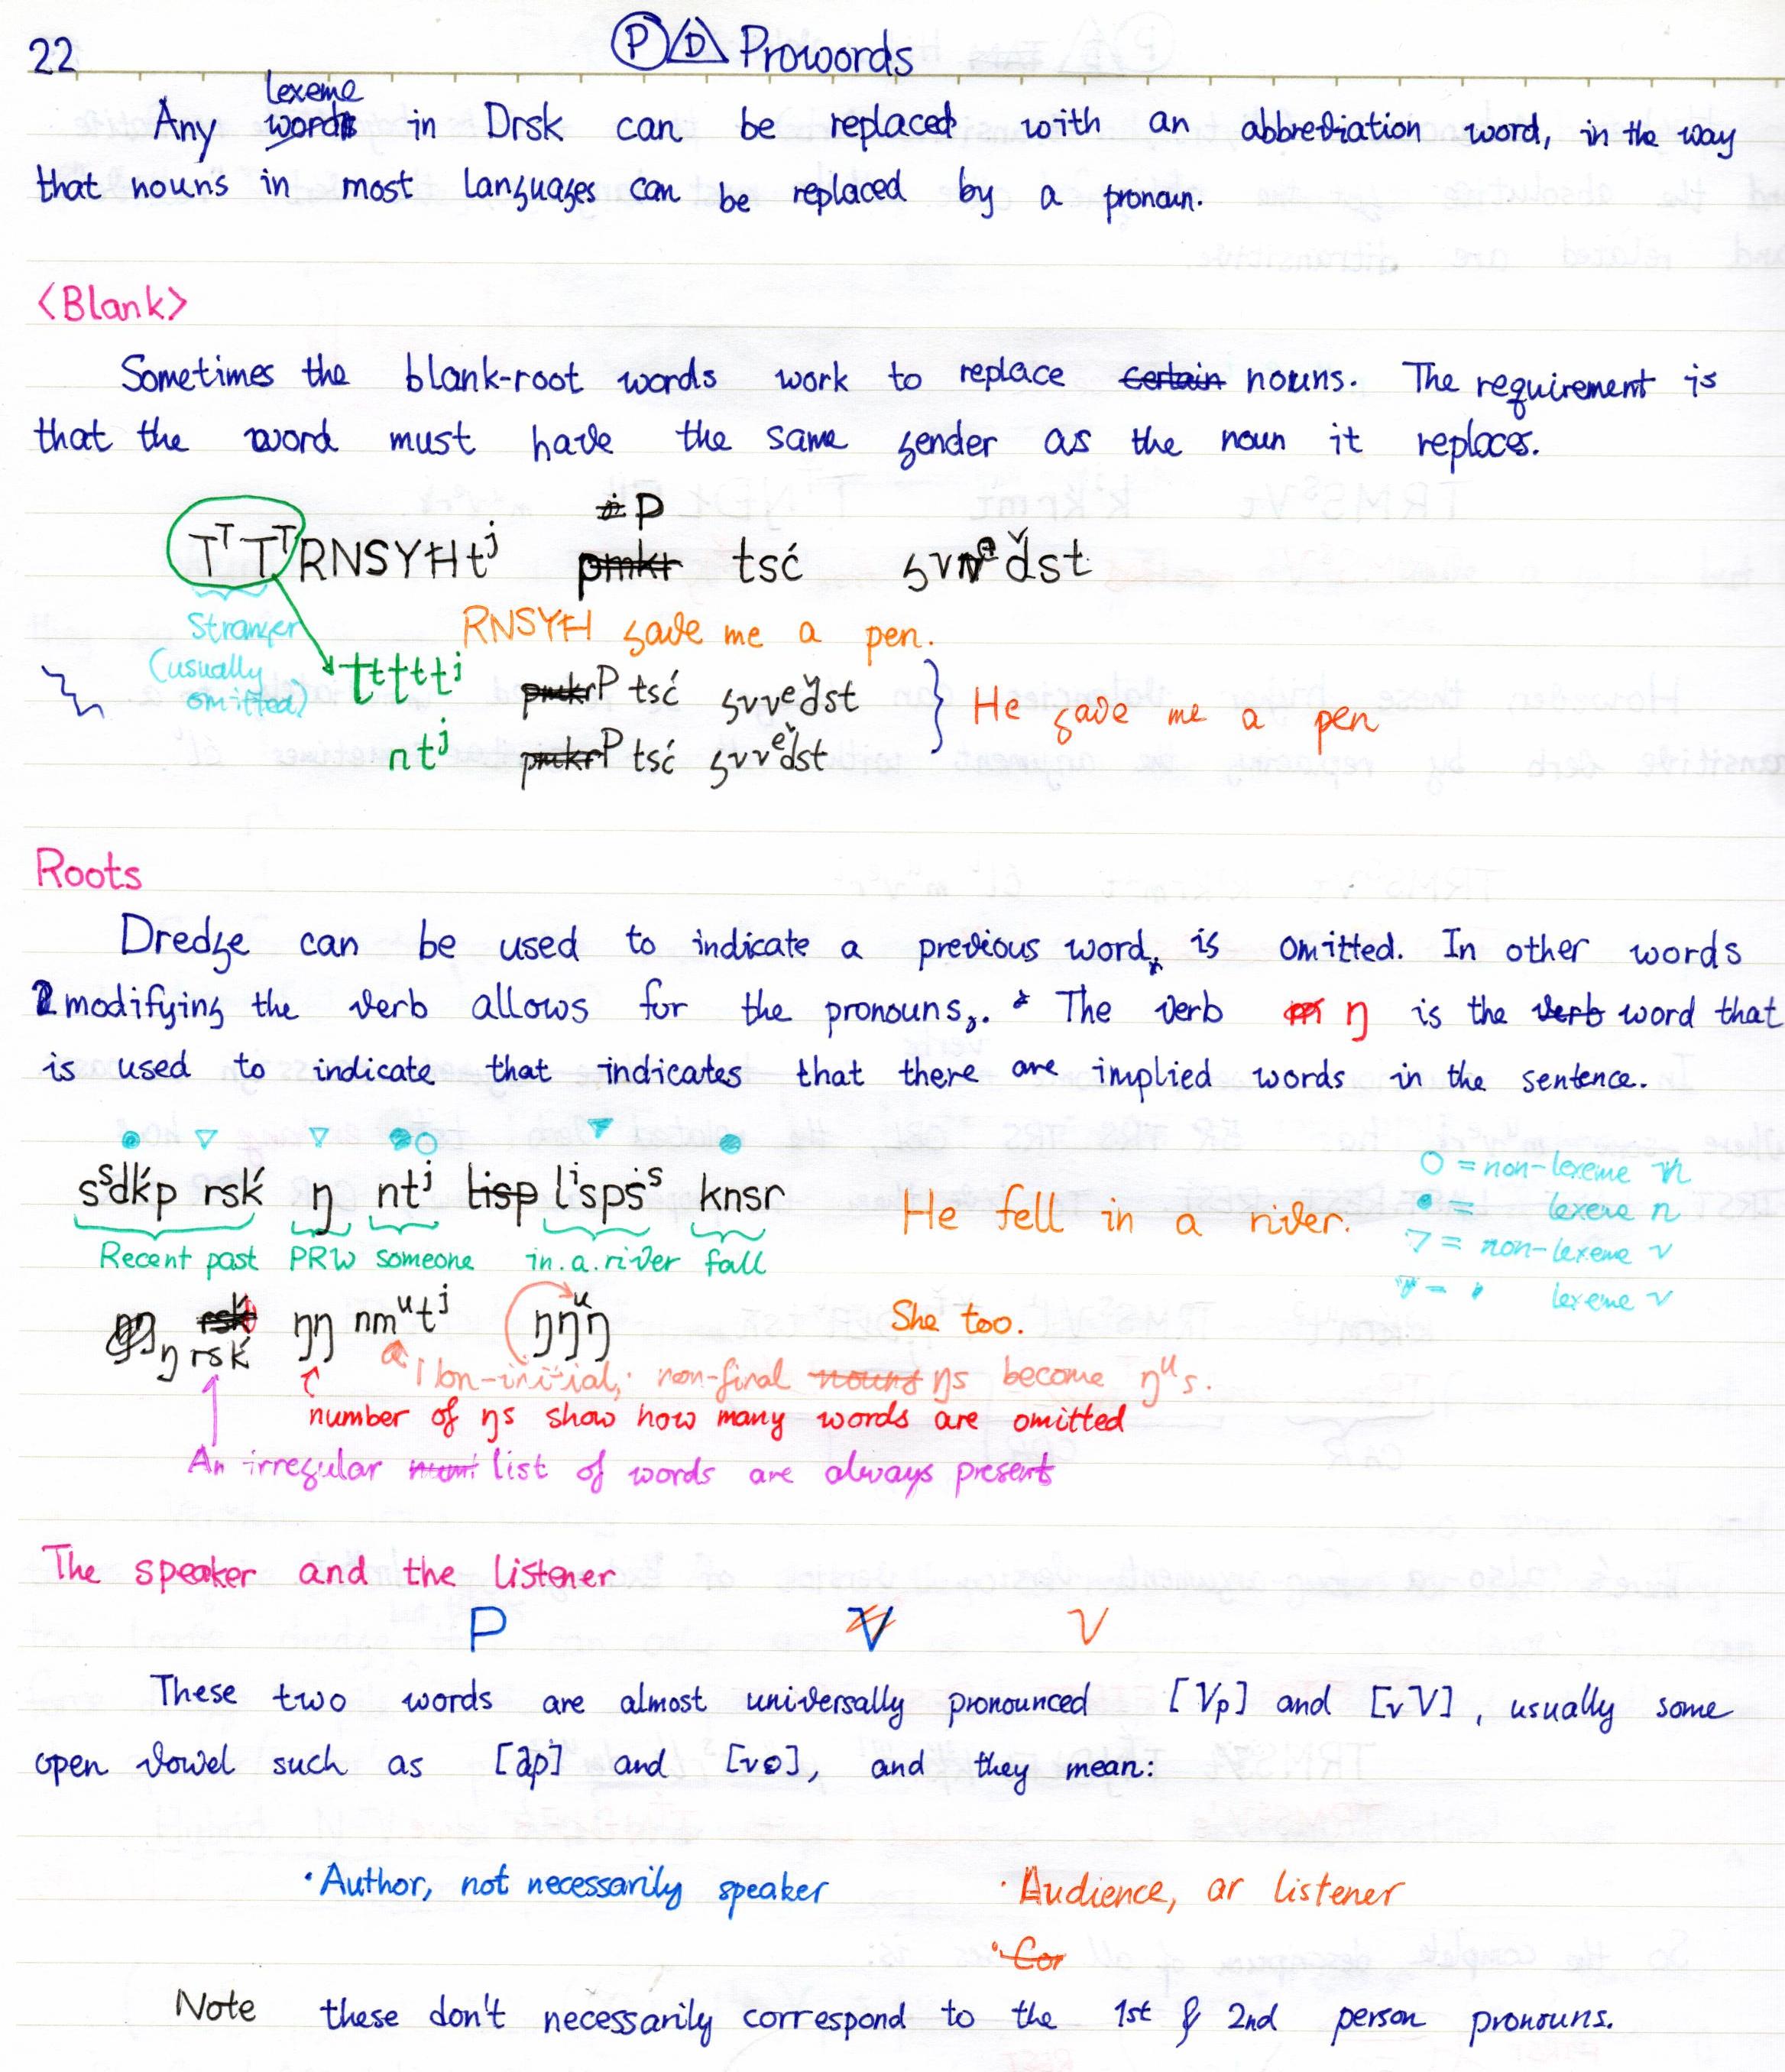 22 P D Prowords
lexeme
Any words in Drsk can be replaced with an abbreviation word, in the way
that nouns in most languages can be replaced by a pronoun.
<Blank>
Sometimes the blank-root words work to replace certain nouns. The requirement is
that the word must have the same gender as the noun it replaces.
P
TᵀTᵀRNSYĦtʲ pmkr tsć
Stranger RNSYĦ gave me a pen.
(usually omitted)
tttttʲ pmkr P tsć
He gave me a pen
ntʲ pmkr P tsć
Roots
Dredge can be used to indicate a previous word is omitted. In other words
modifying the verb allows for the pronouns. The verb ŋ is the verb word that
is used to indicate that indicates that there are implied words in the sentence.
sˢdḱp rsḱ ŋ ntʲ lisp lⁱspṡˢ knsr He fell in a river.
Recent past PRW someone in.a.river fall
O = non-lexeme n
● = lexeme n
▽ = non-lexeme v
▼ = lexeme v
ŋ rsḱ ŋŋ nmᵘtʲ ŋŋᵘŋ She too.
Non-initial, non-final nouns ŋs become ŋᵘs.
number of ŋs show how many words are omitted
An irregular list of words are always present
The speaker and the listener
P V V
These two words are almost universally pronounced [Vp] and [vV], usually some
open vowel such as and and they mean:
· Author, not necessarily speaker · Audience, or listener
· Cor
Note these don't necessarily correspond to the 1st & 2nd person pronouns.